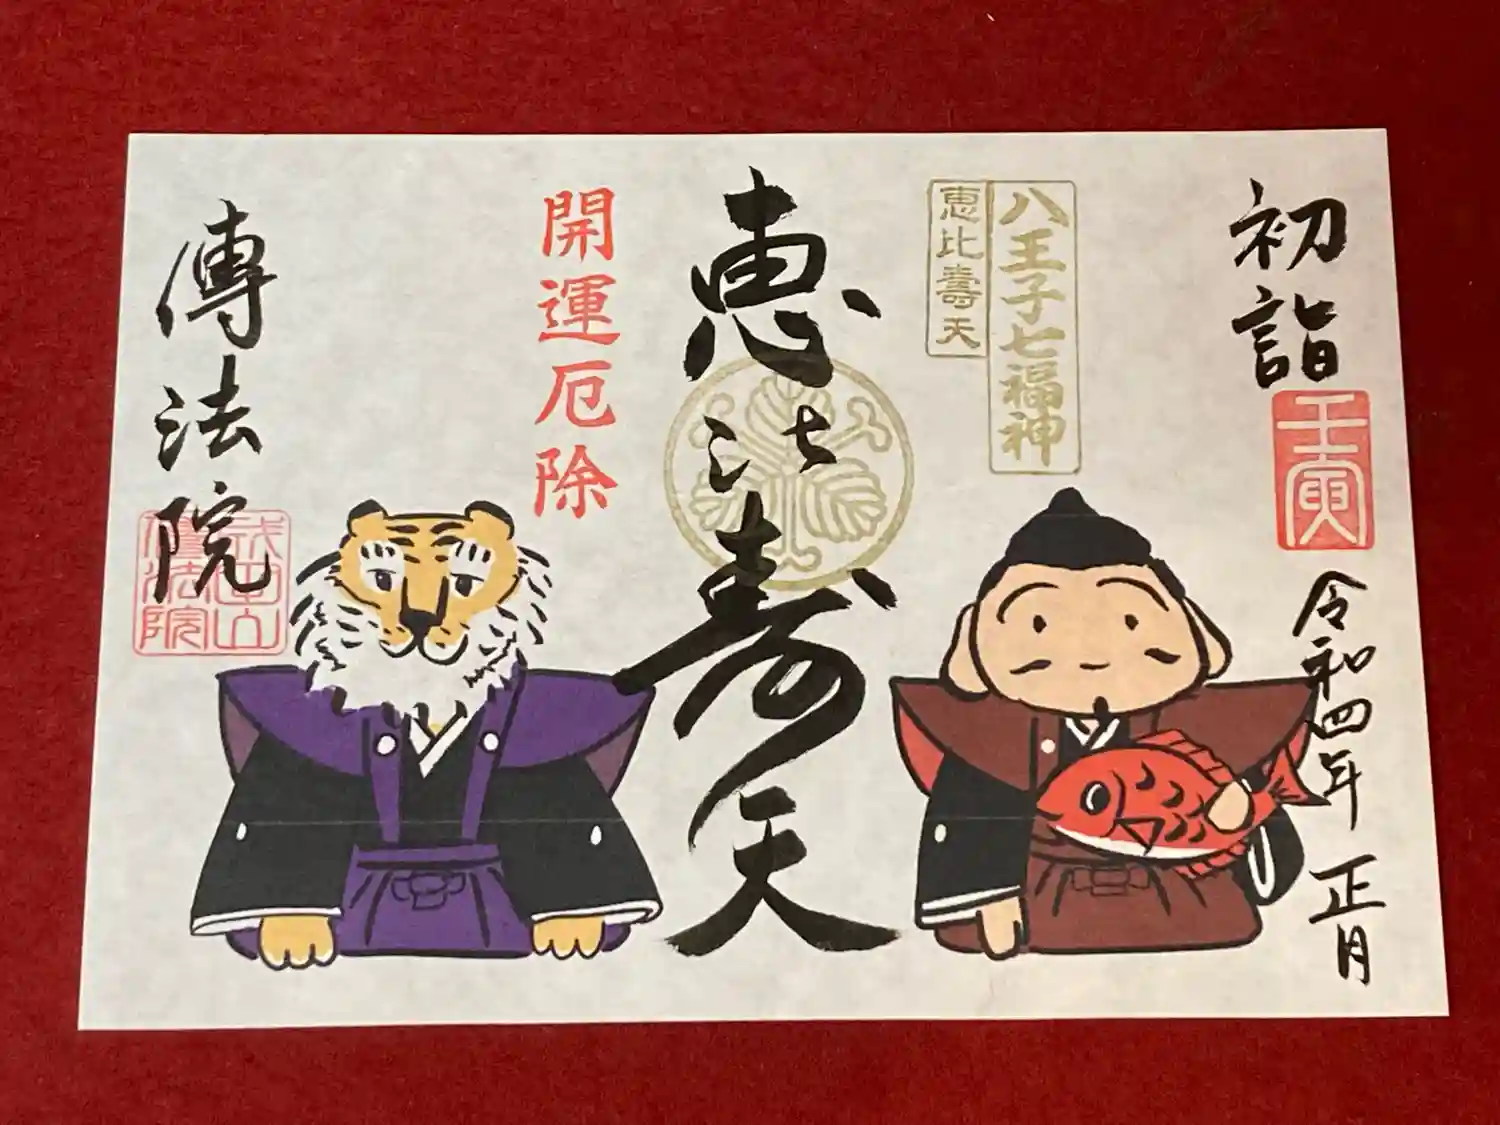 初詣
壬寅
令和四年 正月
八王子七福神
恵比壽天
恵比寿天
開運厄除
傳法院